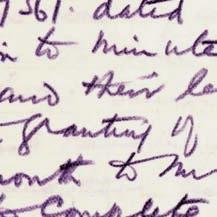 1961. dated
in to Minute
and their le
granting of
month to Mr
to Complete